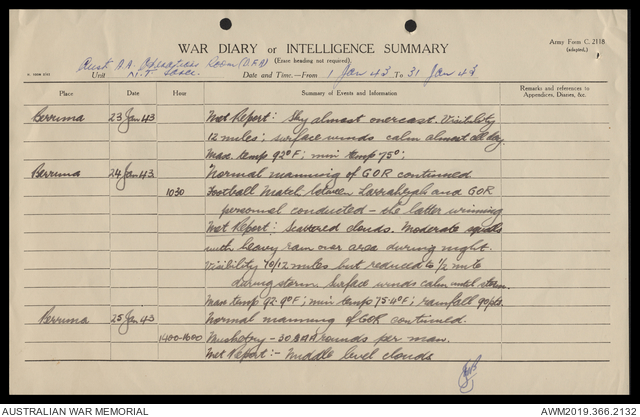 WAR DIARY or INTELLIGENCE SUMMARY
Army Form C. 2118
(adapted.)
(Erase heading not required).
Aust A.A. Operations Room (D.R.N)
Unit N.T. Force.
Date and Time.—From 1 Jan 43 To 31 Jan 43.
Place Date Hour Summary of Events and Information Remarks and references to Appendices, Diaries, &c.
Berrima 23 Jan 43 Met Report: Sky almost overcast. Visibility
12 miles; surface winds calm almost all day.
Max. temp 92°F; min temp 75°;
Berrima 24 Jan 43 Normal manning of GOR continued
1030 Football Match between Larrakeyah and GOR
personnel conducted – the latter winning
Met Report: Scattered clouds. Moderate squalls
with heavy rain over area during night.
Visibility 10/12 miles but reduced to 1/2 mile
during storm. Surface winds calm until storm.
Max temp 92.9°F; min temp 75.4°F; rainfall 90 pts.
Berrima 25 Jan 43 Normal manning of GOR continued.
1400-1600 Musketry – 30 rounds per man.
Met Report:- Middle level clouds
AUSTRALIAN WAR MEMORIAL
AWM2019.366.2132